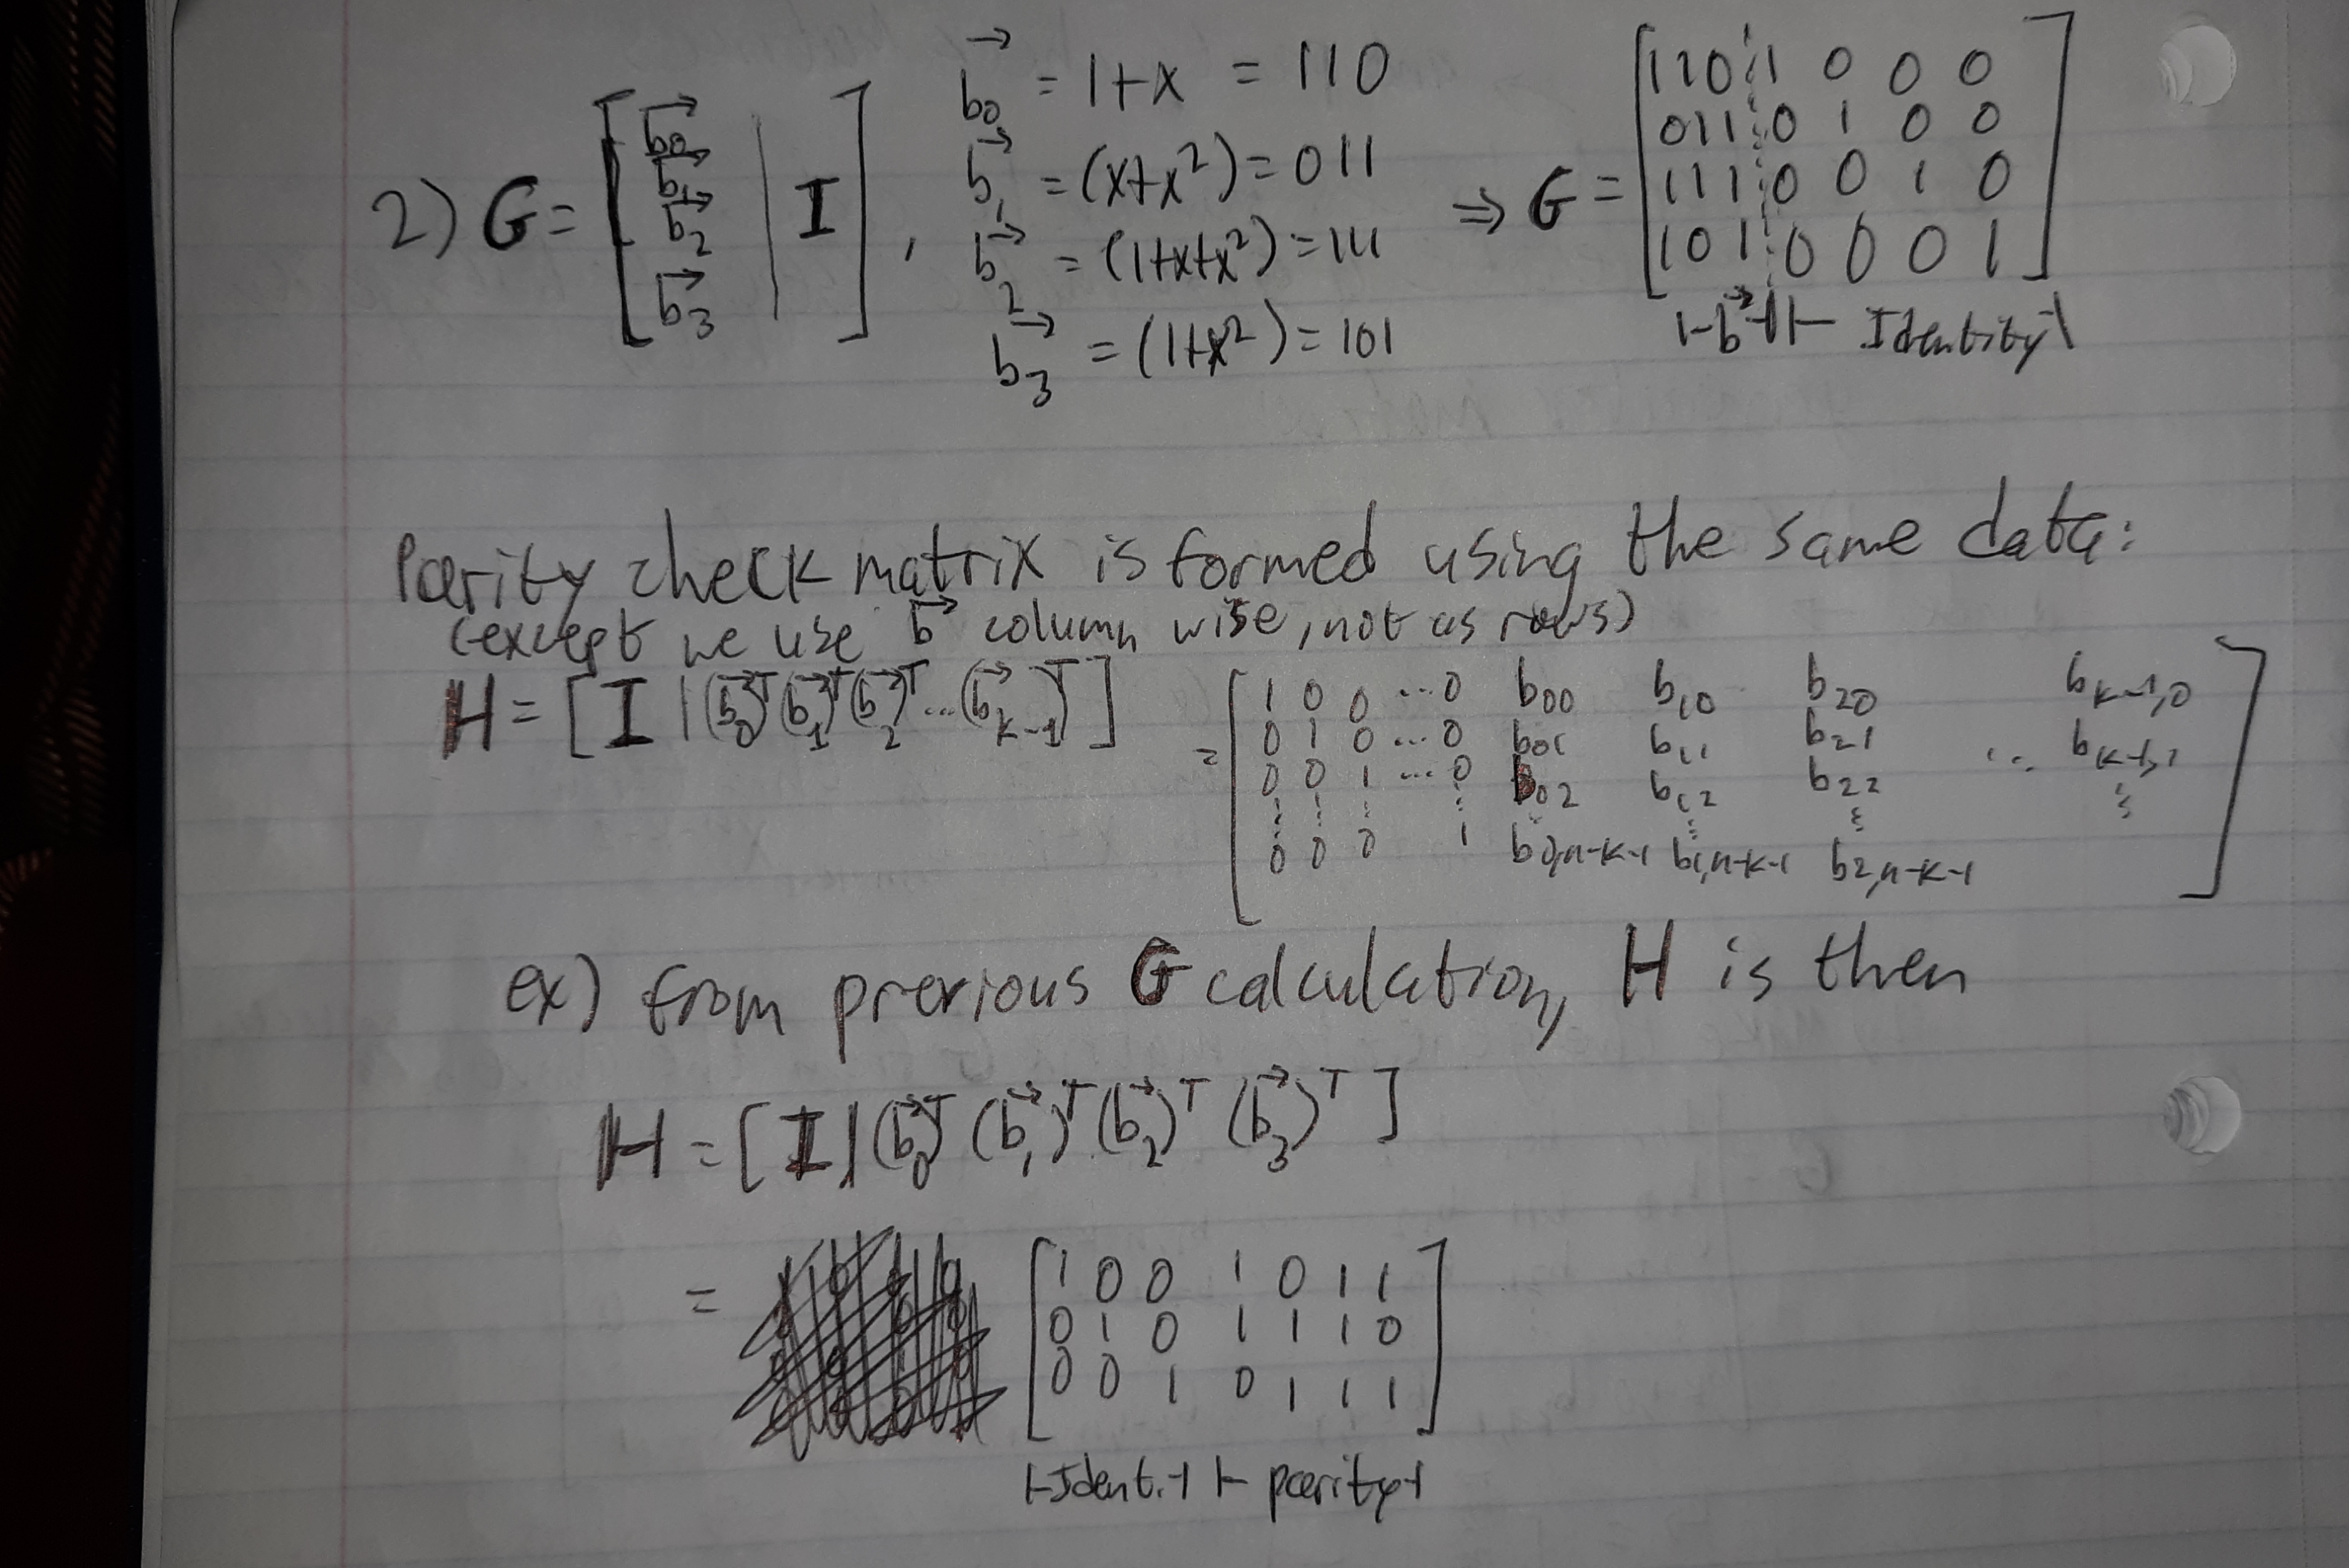 2) G = [b⃗0 b⃗1 b⃗2 b⃗3 | I] ,
b⃗0 = 1+x = 110
b⃗1 = (x+x²) = 011
b⃗2 = (1+x+x²) = 111
b⃗3 = (1+x²) = 101
⇒ G = [
110 1 0 0 0
011 0 1 0 0
111 0 0 1 0
101 0 0 0 1
]
|-b⃗-||- Identity-|
Parity check matrix is formed using the same data:
(except we use b⃗ column wise, not as rows)
H = [I | (b⃗0)ᵀ (b⃗1)ᵀ (b⃗2)ᵀ ... (b⃗k-1)ᵀ]
= [
1 0 0 ... 0 b00 b10 b20 bk-1,0
0 1 0 ... 0 b01 b11 b21 ... bk-1,1
0 0 1 ... 0 b02 b12 b22 ⋮
⋮ ⋮ ⋮ ⋮ ⋮ ⋮ ⋮
0 0 0 1 b0,n-k-1 b1,n-k-1 b2,n-k-1
]
ex) from previous G calculation, H is then
H = [I | (b⃗0)ᵀ (b⃗1)ᵀ (b⃗2)ᵀ (b⃗3)ᵀ]
= [
1 0 0 1 0 1 1
0 1 0 1 1 1 0
0 0 1 0 1 1 1
]
|-Ident.-| |- parity-|